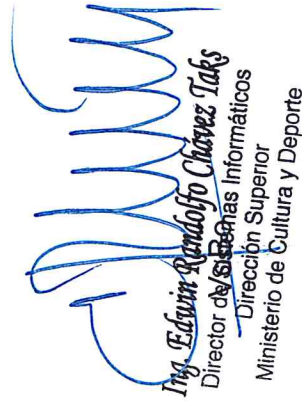 Ing. Edwin Randolfo Chávez Taks
Director de Sistemas Informáticos
Dirección Superior
Ministerio de Cultura y Deporte